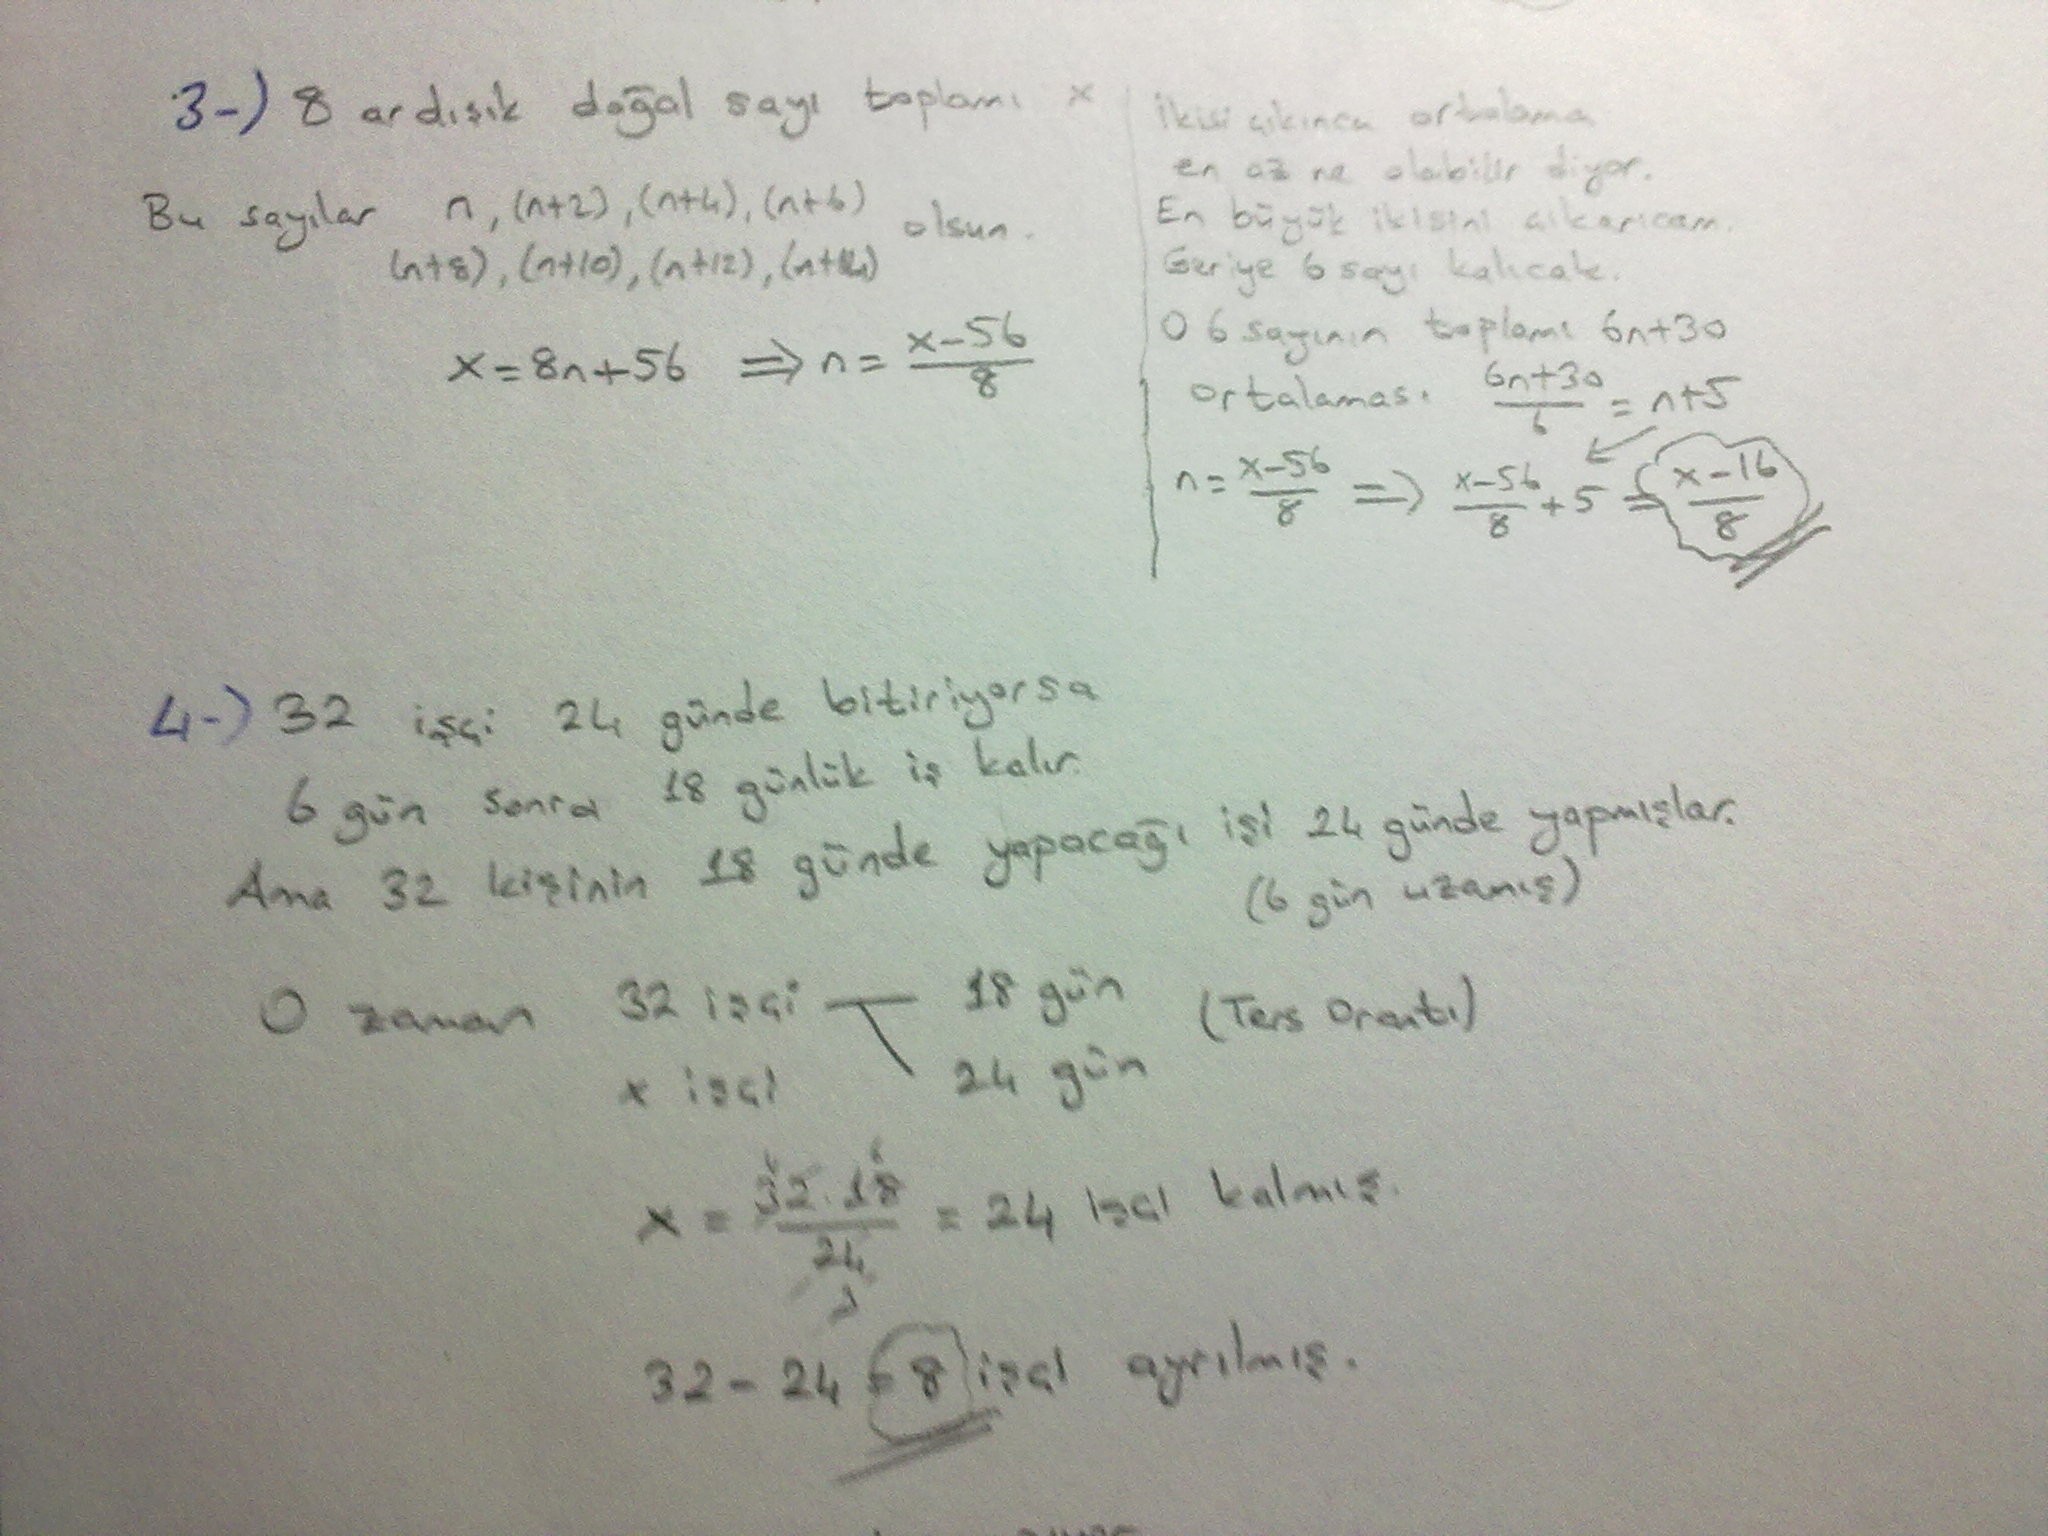 3-) 8 ardışık doğal sayı toplamı x
Bu sayılar n, (n+2), (n+4), (n+6) olsun.
(n+8), (n+10), (n+12), (n+14)
x = 8n+56 ⟹ n = (x-56)/8
İkisi çıkınca ortalama
en az ne olabilir diyor.
En büyük ikisini çıkarıcam.
Geriye 6 sayı kalıcak.
O 6 sayının toplamı 6n+30
ortalaması (6n+30)/6 = n+5
n = (x-56)/8 ⟹ (x-56)/8 + 5 = (x-16)/8
4-) 32 işçi 24 günde bitiriyorsa
6 gün sonra 18 günlük iş kalır.
Ama 32 kişinin 18 günde yapacağı işi 24 günde yapmışlar.
(6 gün uzamış)
O zaman 32 işçi 18 gün (Ters Orantı)
x işçi 24 gün
x = (32.18)/24 = 24 işçi kalmış.
32 - 24 = 8 işçi ayrılmış.